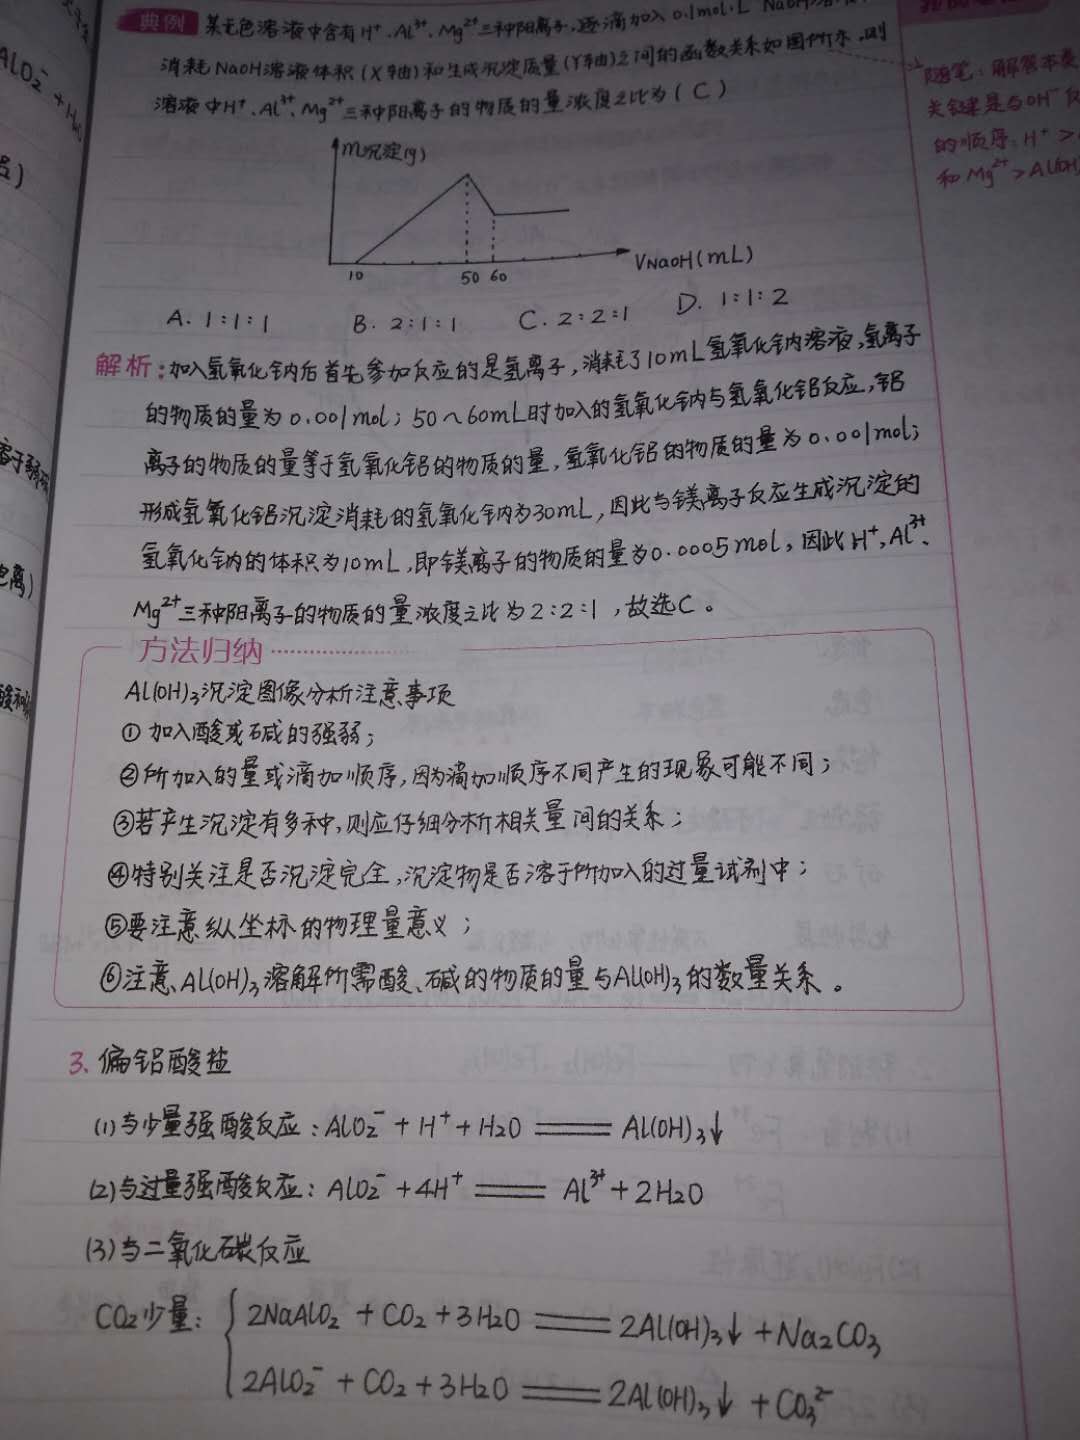 典例 某无色溶液中含有H⁺、Al³⁺、Mg²⁺三种阳离子,逐滴加入0.1mol·L NaOH溶
消耗NaOH溶液体积(X轴)和生成沉淀质量(Y轴)之间的函数关系如图所示,则
溶液中H⁺、Al³⁺、Mg²⁺三种阳离子的物质的量浓度之比为(C)
随笔:解答本类
关键是与OH⁻反
的顺序:H⁺>
和Mg²⁺>Al(OH)
m沉淀(g)
10 50 60
VNaOH(mL)
A. 1:1:1 B. 2:1:1 C. 2:2:1 D. 1:1:2
解析:加入氢氧化钠后首先参加反应的是氢离子,消耗了10mL氢氧化钠溶液,氢离子
的物质的量为0.001mol;50~60mL时加入的氢氧化钠与氢氧化铝反应,铝
离子的物质的量等于氢氧化铝的物质的量,氢氧化铝的物质的量为0.001mol;
形成氢氧化铝沉淀消耗的氢氧化钠为30mL,因此与镁离子反应生成沉淀的
氢氧化钠的体积为10mL,即镁离子的物质的量为0.0005mol,因此H⁺、Al³⁺、
Mg²⁺三种阳离子的物质的量浓度之比为2:2:1,故选C。
方法归纳
Al(OH)₃沉淀图像分析注意事项
①加入酸或碱的强弱;
②所加入的量或滴加顺序,因为滴加顺序不同产生的现象可能不同;
③若产生沉淀有多种,则应仔细分析相关量间的关系;
④特别关注是否沉淀完全,沉淀物是否溶于所加入的过量试剂中;
⑤要注意纵坐标的物理量意义;
⑥注意Al(OH)₃溶解所需酸、碱的物质的量与Al(OH)₃的数量关系。
3.偏铝酸盐
(1)与少量强酸反应:AlO₂⁻+H⁺+H₂O══Al(OH)₃↓
(2)与过量强酸反应:AlO₂⁻+4H⁺══Al³⁺+2H₂O
(3)与二氧化碳反应
CO₂少量:
2NaAlO₂+CO₂+3H₂O══2Al(OH)₃↓+Na₂CO₃
2AlO₂⁻+CO₂+3H₂O══2Al(OH)₃↓+CO₃²⁻